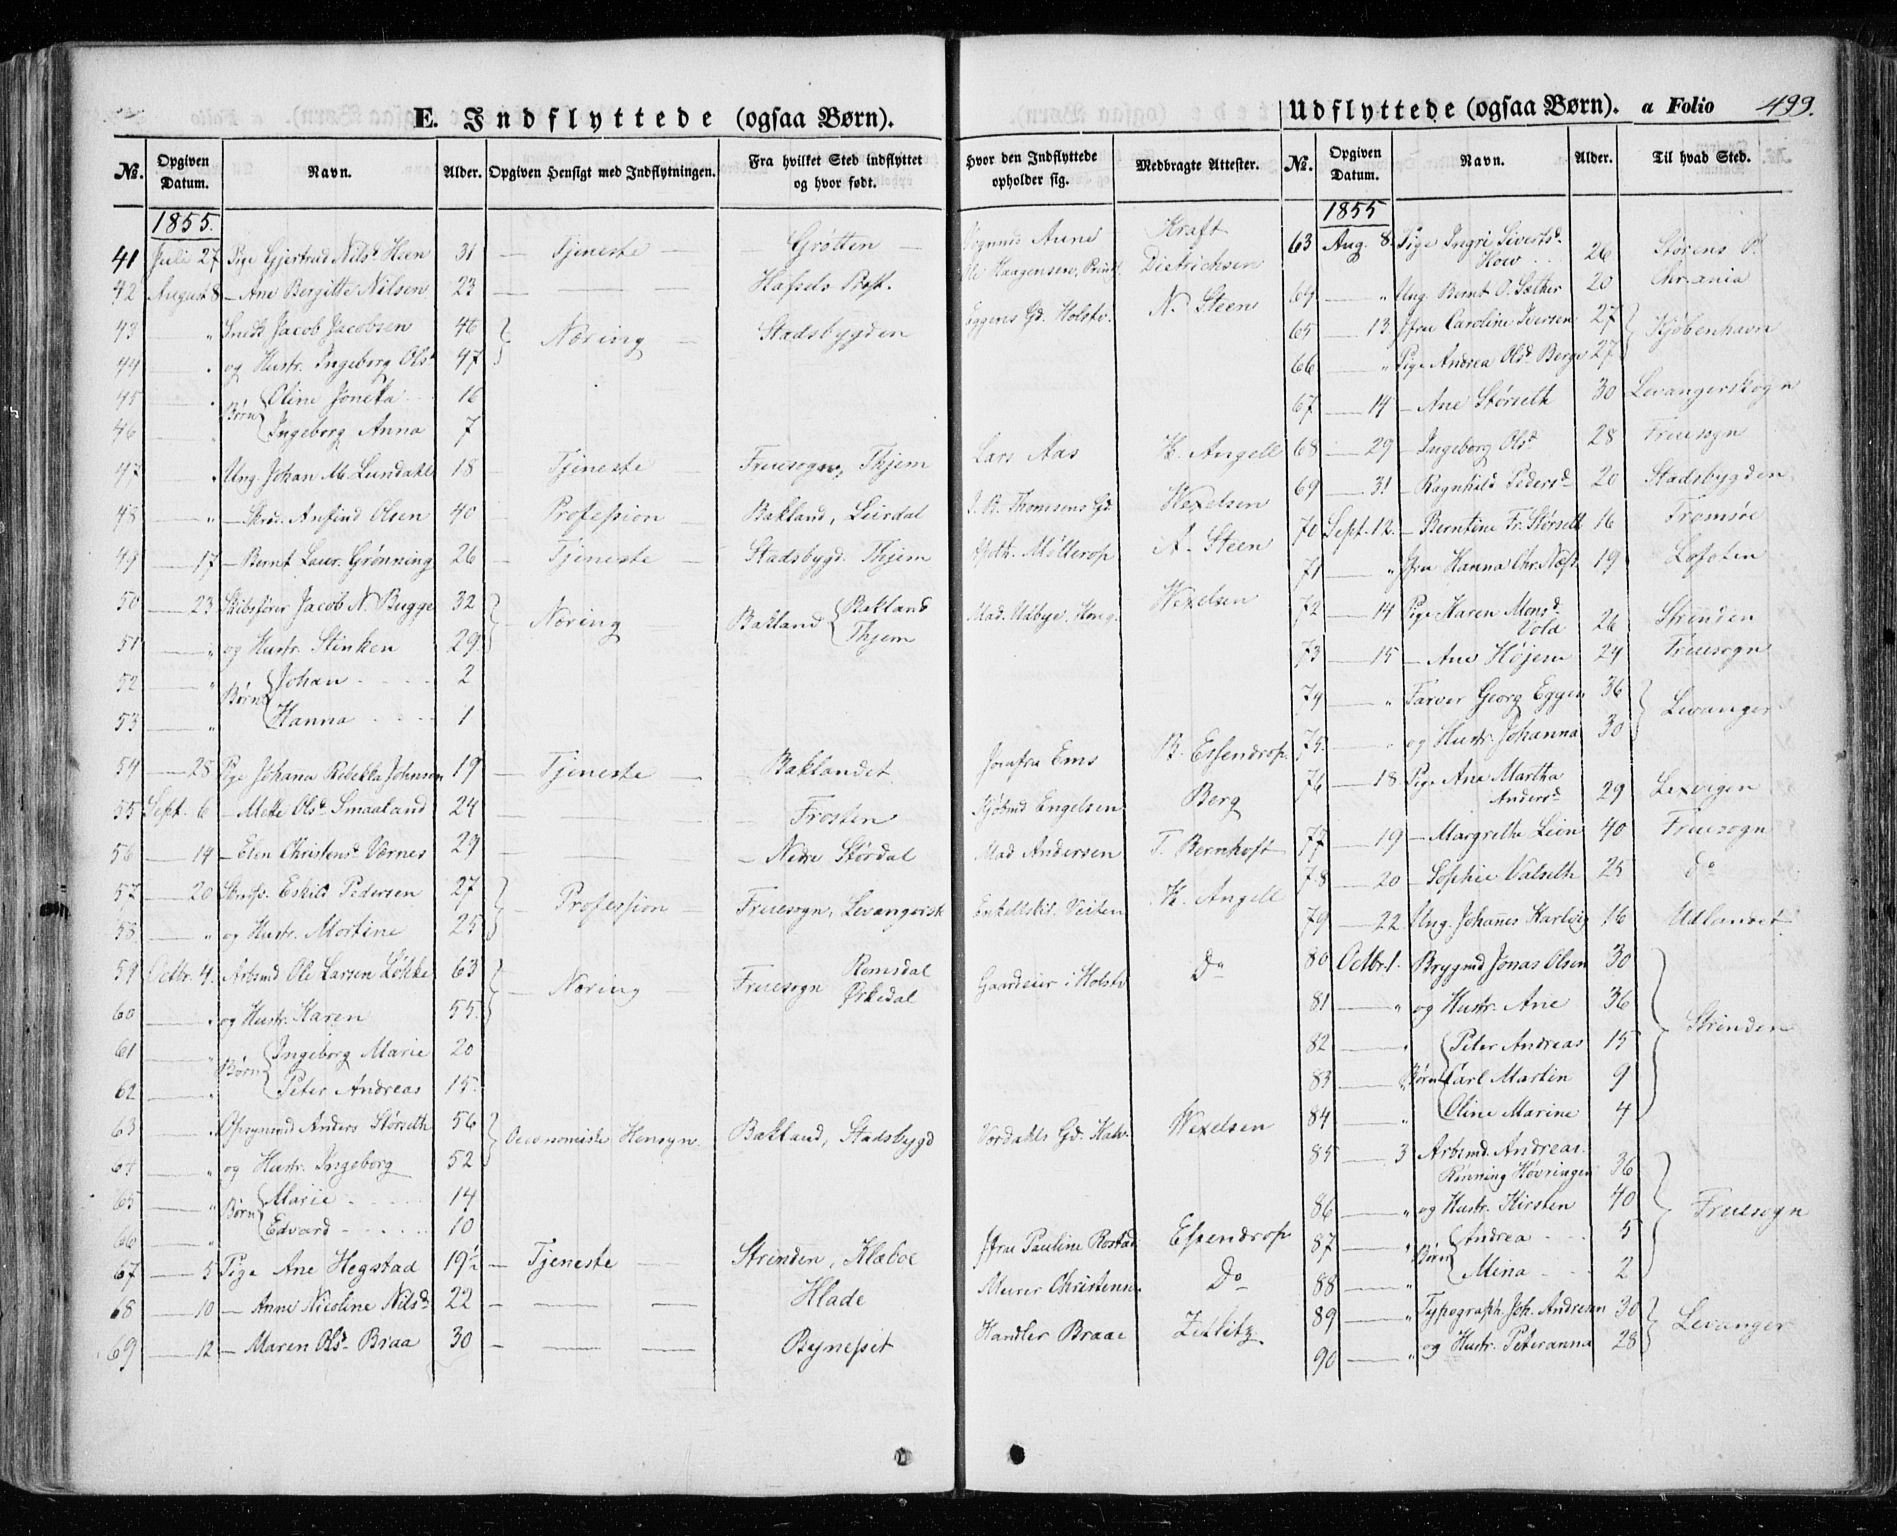 E. Indflyttede (ogsaa Børn).
No. Opgiven Datum. Navn. Alder. Opgiven Hensigt med Indflytningen. Fra hvilket Sted indflyttet og hvor født. Hvor den Indflyttede opholder sig. Medbragte Attester.
1855.
41 Juli 27 Pige Gjertrud Nilsd Heen 31 — Tjeneste — Grøtten — Aune Kraft
42 August 8 — Ane Bergitte Nilsen 23 — Hafslo Præst. Haagensen, Dietrichsen
43 " Snedk Jacob Jacobsen 46 Næring — Stadsbygden Eggens Gd. Holstv. N. Steen
44 " og Hustr. Ingeborg Olsd 47
45 " Børn Oline Joneta 16
46 " Ingeborg Anna 7
47 " Ung. Johan M. Lundahl 18 — Tjeneste — Fruesogn, Thjem Lars Aas K. Angell
48 " — Skrd. Anfind Olsen 40 — Profession — Bakland, Leirdal J. B. Thomsens Gd Wexelsen
49 — 17 — Bernt Laur. Grønning 26 — Tjeneste — Stadsbygd. Thjem Apoth. Møllerop A. Steen
50 — 23 Skibsfører Jacob N. Bugge 32 — Næring — Bakland Bakland Thjem Mad. Udbye, Kong. Wexelsen
51 — " og Hustr. Stinken 29
52 — " Børn Johan 2
53 — " Hanna 1
54 — 28 Pige Johana Rebekka Johnsen 19 — Tjeneste — Baklandet Jomfru Ems B. Essendrop
55 Sept. 6 — Mette Olsd Smaaland 24 — Frosten Kjøbmd Engelsen Berg
56 — 14 — Elen Christensd Værnes 29 — Nedre Størdal Mad Andersen T. Bernhoft
57 — 20 Skrdsv. Eskild Pedersen 27 — Profession — Fruesogn, Levangersk Enkeltskil. Veiten K. Angell
58 — " og Hustr. Mortine 25
59 Octbr. 4. Arbmd Ole Larsen Løkke 63 — Næring — Fruesogn Romsdal Ørkedal Gaardeier i Holstv Do
60 — " og Hustr. Karen 55
61 — " Børn Ingeborg Marie 20
62 — " Peter Andreas 15
63 — " Opsynmd Anders Størseth 56 Oeconomiske Hensyn. Bakland, Stadsbygd Vordahls Gd. Kalv. Wexelsen
64 — " og Hustr. Ingeborg 52
65 — " Børn Marie 14
66 — " Edvard 10
67 — 5 Pige Ane Hegstad 19½ — Tjeneste — Strinden, Klæboe Jfru Pauline Rostad Essendrop
68 — 10 — Anne Nicoline Nilsd 22 — Hlade Murer Christensen Do
69 — 12 — Maren Olsd Braa 30 — Bynesset Handler Braae Zetlitz
Udflyttede (ogsaa Børn). a Folio 499.
No. Opgiven Datum. Navn. Alder. Til hvad Sted.
1855
63 Aug. 8. Pige Ingri Sivertsd. How 26 Størens P.
64 — " Ung. Bernt O. Sæther 20 Chr.ania
65 — 13 Jfru Caroline Iversen 27 Kjøbenhavn
66 " Pige Andrea Olsd Berge 27
67 — 14 — Ane Størseth 30 Levangerskogn
68 — 29 — Ingeborg Olsd 28 Fruesogn
69 — 31 — Ragnhild Pedersd 20 Stadsbygden
70 Sept. 12. — Berntine Fr. Størseth 16 Tromsøe
71 — " Jfru Hanna Chr. Næss 19 Lofoten
72 — 14 Pige Karen Monsd Vold 26 Strinden
73 — 15 — Ane Højem 24 Fruesogn
74 — " Farver Georg Eggen 36 Levanger
75 — " og Hustr. Johanna 30
76 — 18 Pige Ane Martha Andersd 29 Lexvigen
77 — 19 — Margretha Lein 40 Fruesogn
78 — 20 — Sophie Valseth 25 do
79 — 22 Ung. Johanes Hartvig 16 Udlandet
80 Octbr 1. Brygmd Jonas Olsen 30 Strinden
81 — " og Hustr. Ane 36
82 — " Peter Andreas 15
83 — " Børn Carl Martin 9
84 — " Oline Marine 4
85 — 3 Arbmd. Andreas Rønning Høvringen 36 Fruesogn
86 — " og Hustr. Kirsten 40
87 — " Børn Andrea 5
88 — " Mina 2
89 — " Typograph Joh. Andresen 30 Levanger
90 — " og Hustr. Peteranna 28